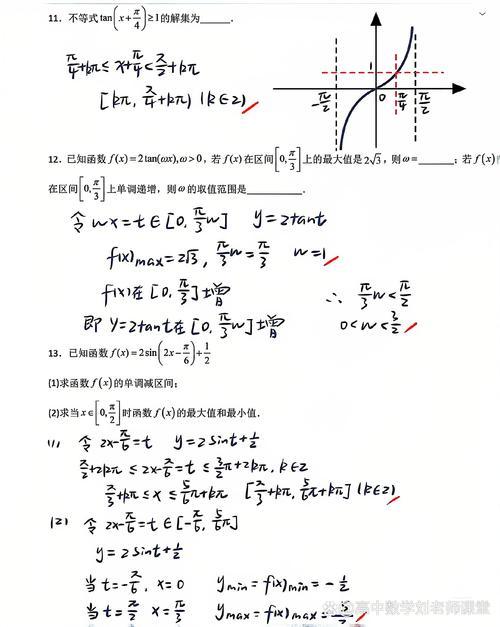 11. 不等式 tan(x+π/4)≥1的解集为______.
π/4+kπ≤x+π/4<π/2+kπ
[kπ, π/4+kπ) (k∈Z)
1
-π/2 0 π/4 π/2
12. 已知函数 f(x)=2tan(ωx),ω>0, 若 f(x)在区间[0,π/3]上的最大值是2√3, 则ω=______; 若 f(x)
在区间[0,π/3]上单调递增, 则ω的取值范围是______.
令wx=t∈[0,π/3w] y=2tant
f(x)max=2√3, π/3w=π/3 w=1
f(x)在[0,π/3]增 ∴ π/3w<π/2
即 y=2tant在[0,π/3w]增 0<w<3/2
13. 已知函数 f(x)=2sin(2x-π/6)+1/2
(1)求函数 f(x)的单调减区间;
(2)求当x∈[0,π/2]时函数 f(x)的最大值和最小值.
(1) 令 2x-π/6=t y=2sint+1/2
π/2+2kπ≤2x-π/6=t≤3/2π+2kπ, k∈Z
π/3+kπ≤x≤5/6π+kπ [π/3+kπ, 5/6π+kπ] (k∈Z)
(2) 令 2x-π/6=t∈[-π/6, 5/6π]
y=2sint+1/2
当t=-π/6, x=0 ymin=f(x)min=-1/2
当t=π/2 x=π/3 ymax=f(x)max=5/2
高中数学刘老师课堂